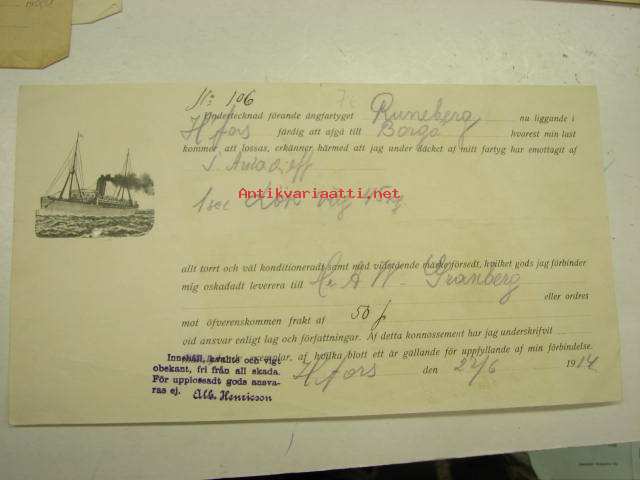 No 106
Undertecknad förande ångfartyget Runeberg nu liggande i
H:fors färdig att afgå till Borgå hvarest min last
kommer att lossas, erkänner härmed att jag under däcket af mitt fartyg har emottagit af
Antikvariaatti.net
1 45 kg
allt torrt och väl konditioneradt samt med vidstående märke försedt, hvilket gods jag förbinder
mig oskadadt leverera till Hr A W. Granberg
eller ordres
mot öfverenskommen frakt af 50 p
vid ansvar enligt lag och författningar. Af detta konnossement har jag underskrifvit
exemplar, af hvilka blott ett är gällande för uppfyllande af min förbindelse.
H:fors den 24/6 1914
Innehåll, kvalité och vigt
obekant, fri från all skada.
För upplossadt gods ansva-
ras ej. Alb. Henricson